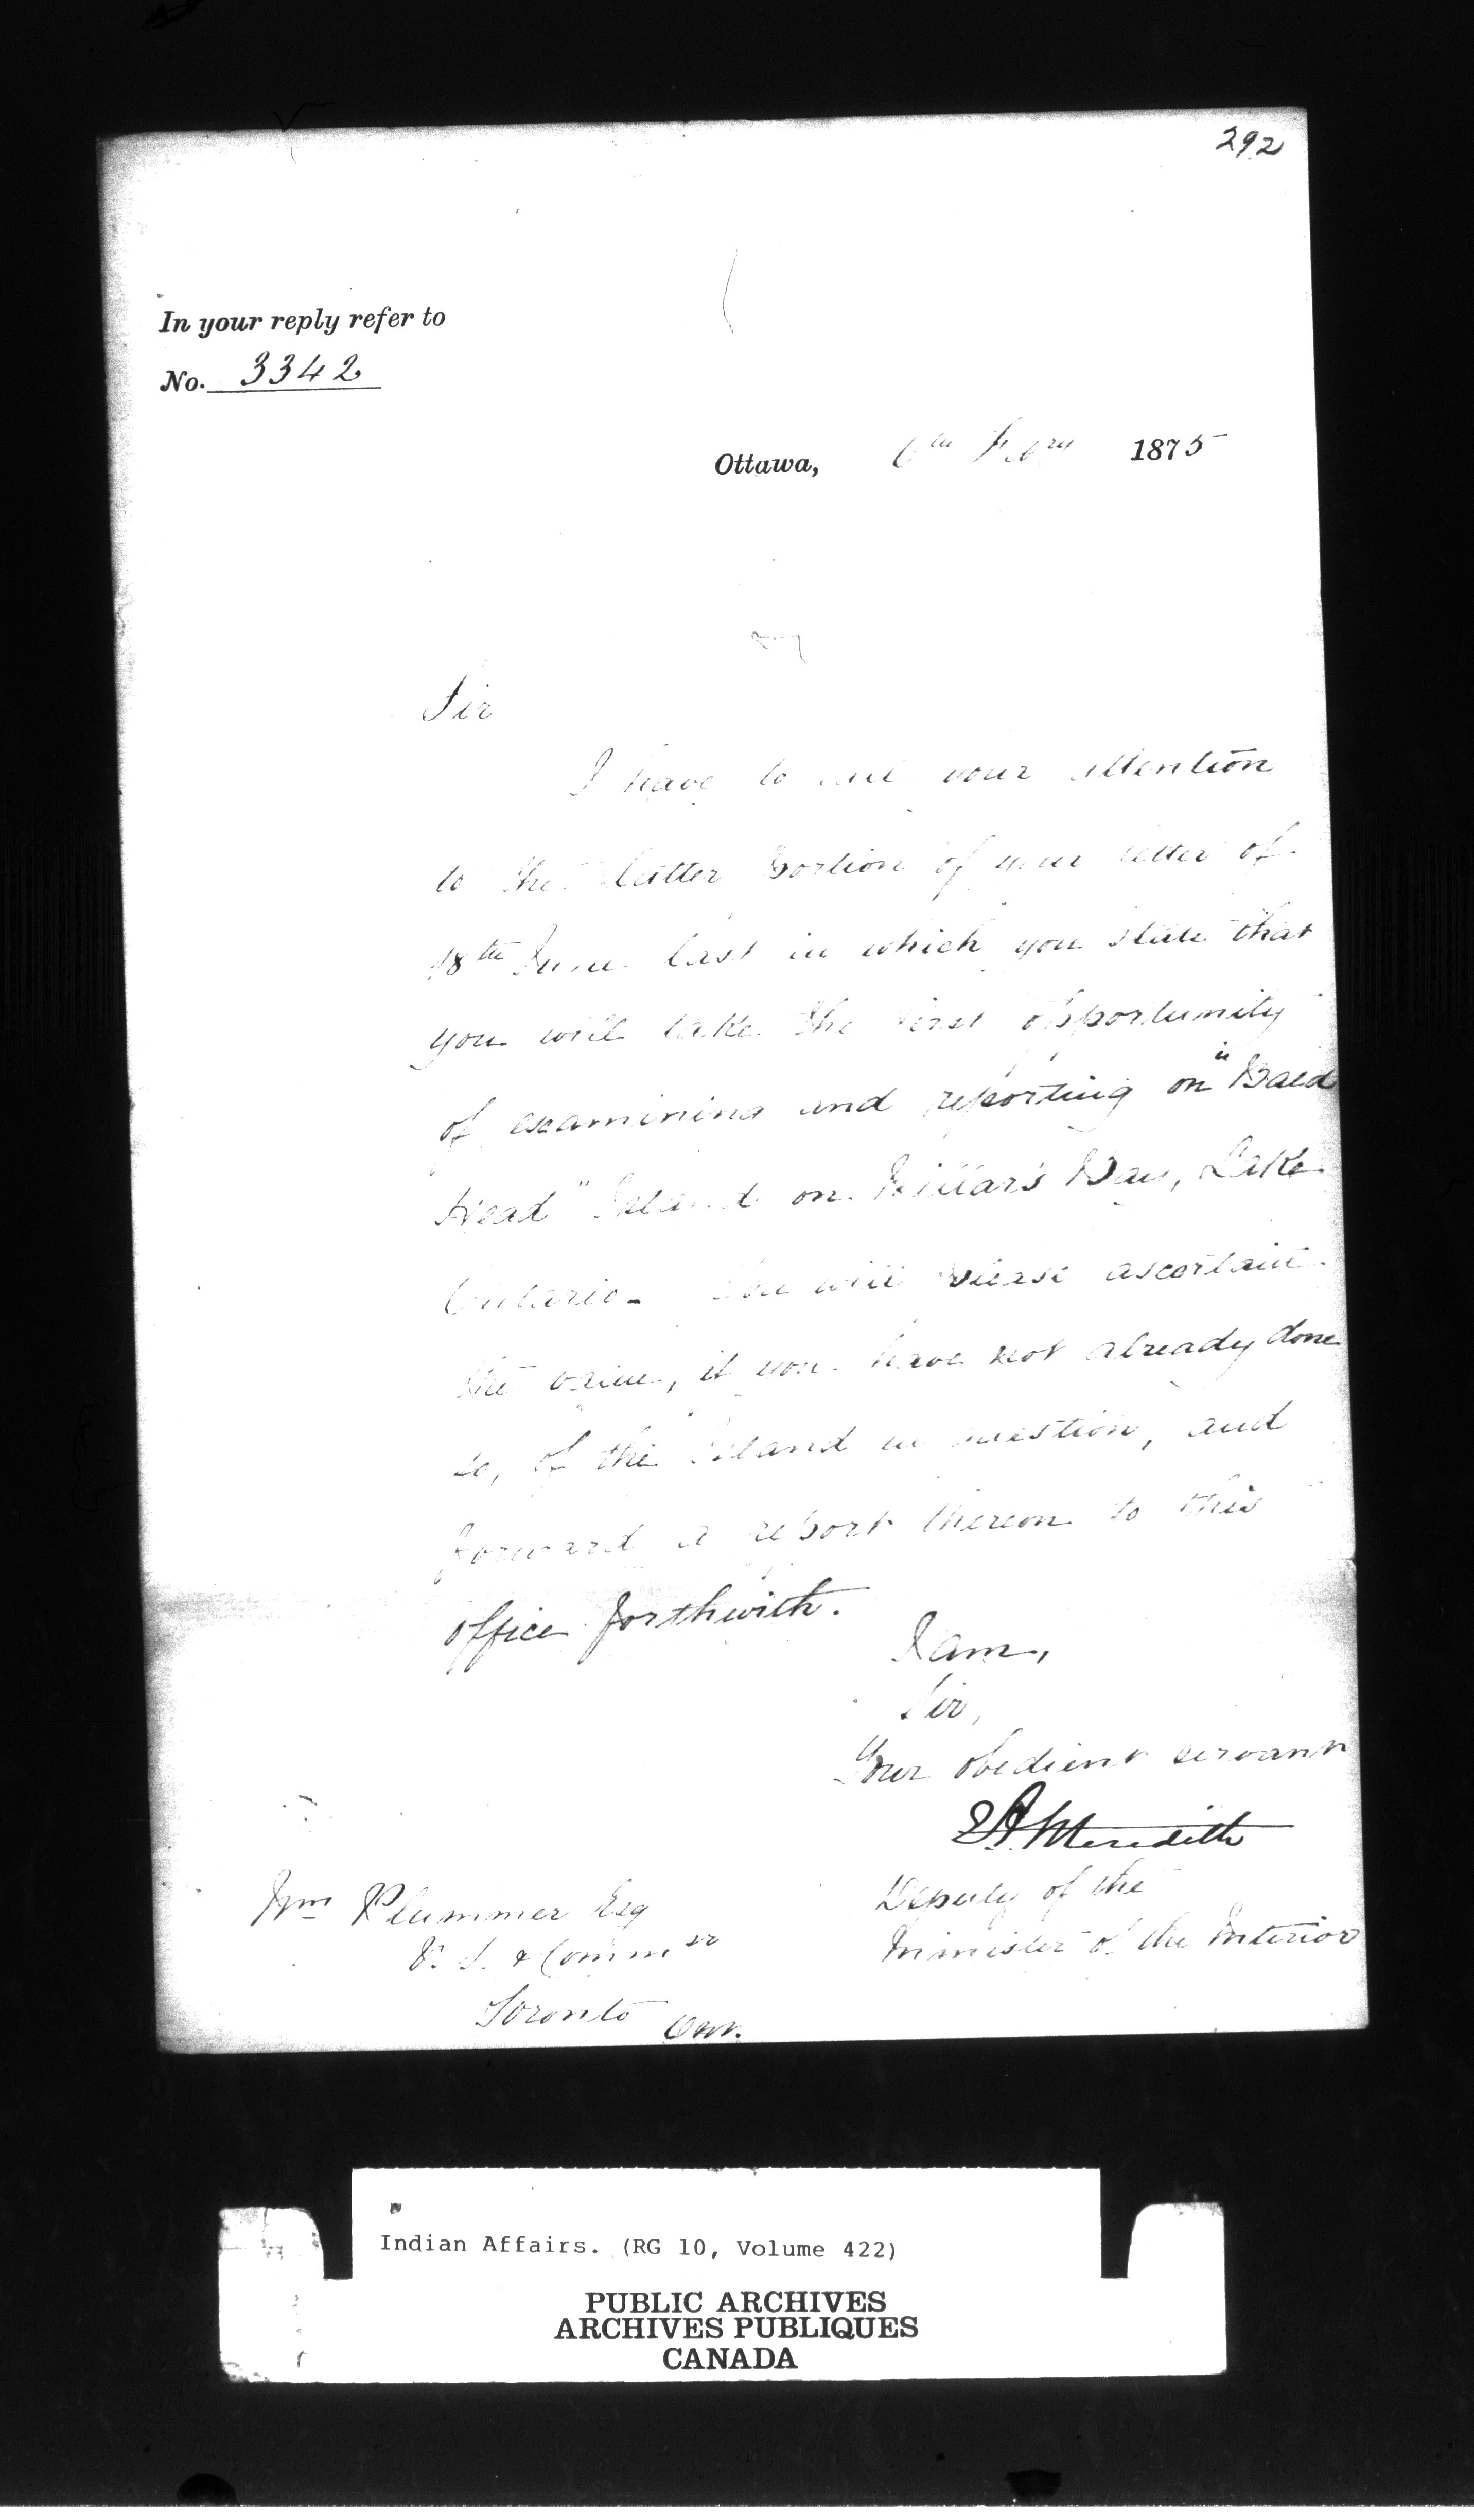 292
In your reply refer to
No. 3342
Ottawa, 6th Febry 1875
Sir
I have to call your attention
to the latter portion of your letter of
18th June last in which you state that
you will take the first opportunity
of examining and reporting on "Bald
Head" Island on Willar's Bay, Lake
Ontario - You will please ascertain
the value, if you have not already done
so, of the Island in question, and
forward a report thereon to this
office forthwith.
I am,
Sir,
Your obedient servant
E A Meredith
Deputy of the
Minister of the Interior
Wm Plummer Esq
V. S. & Commsr
Toronto Ont.
Indian Affairs. (RG 10, Volume 422)
PUBLIC ARCHIVES
ARCHIVES PUBLIQUES
CANADA